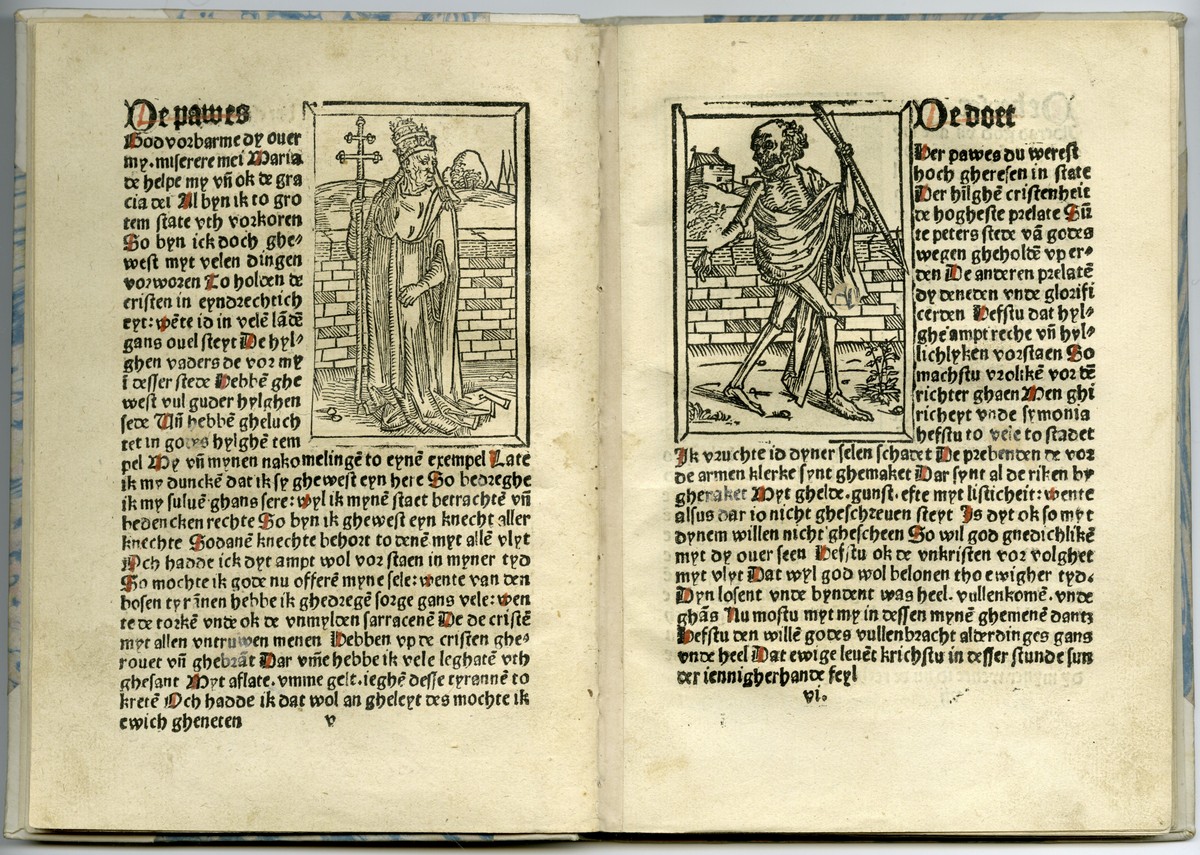 De pawes
God vorbarme dy ouer
my. miserere mei Maria
de helpe my vn̄ ok de gra
cia dei Al byn ik to gro
tem state vth vorkoren
So byn ick doch ghe⸗
west myt velen dingen
vorworen To holden de
cristen in eyndrechtich
eyt: wēte id in velē lādē
gans ouel steyt De hyl⸗
ghen vaders de vor my
ī desser stede Hebbē ghe
west vul guder hylghen
sede Vn̄ hebbē gheluch
tet in godes hylghē tem
pel My vn̄ mynen nakomelingē to eynē exempel Late
ik my dunckē dat ik sy ghewest eyn here So bedreghe
ik my suluē ghans sere: wyl ik mynē staet betrachtē vn̄
bedencken rechte So byn ik ghewest eyn knecht aller
knechte Sodanē knechte behort to denē myt allē vlyt
Och hadde ick dyt ampt wol vor staen in myner tyd
So mochte ik gode nu offerē myne sele: wente van den
bosen tyrānen hebbe ik ghedregē sorge gans vele: wen
te de torkē vnde ok de vnmylden sarracenē De de cristē
myt allen vntruwen menen Hebben vp de cristen ghe⸗
rouet vn̄ ghebrāt Dar vmē hebbe ik vele leghatē vth
ghesant Myt aflate. vmme gelt. ieghē desse tyrannē to
kretē Och hadde ik dat wol an gheleyt des mochte ik
ewich gheneten
v
De doet
Her pawes du werest
hoch gheresen in state
Der hilghē cristenheit
de hogheste prelate Sū
te peters stede vā godes
wegen gheholdē vp er⸗
den De anderen prelatē
dy deneden vnde glorifi
cerden Hefstu dat hyl⸗
ghe ampt reche vn̄ hyl⸗
lichlyken vorstaen So
machstu vrolikē vor dē
richter ghaen Men ghi
richeyt vnde symonia
hefstu to vele to stadet
Ik vruchte id dyner selen schadet De prebenden de vor
de armen klerke synt ghemaket Dar synt al de riken by
gheraket Myt ghelde. gunst. efte myt listicheit: wente
alsus dar io nicht gheschreuen steyt Is dyt ok so myt
dynem willen nicht ghescheen So wil god gnedichlikē
myt dy ouer seen Hefstu ok de vnkristen vor volghet
myt vlyt Dat wyl god wol belonen tho ewigher tyd.
Dyn losent vnde byndent was heel. vullenkomē. vnde
ghās Nu mostu myt my in dessen mynē ghemenē dantz
Hefstu den willē godes vullenbracht alderdinges gans
vnde heel Dat ewige leuēt krichstu in desser stunde sun
der iennigherhande feyl
vi.